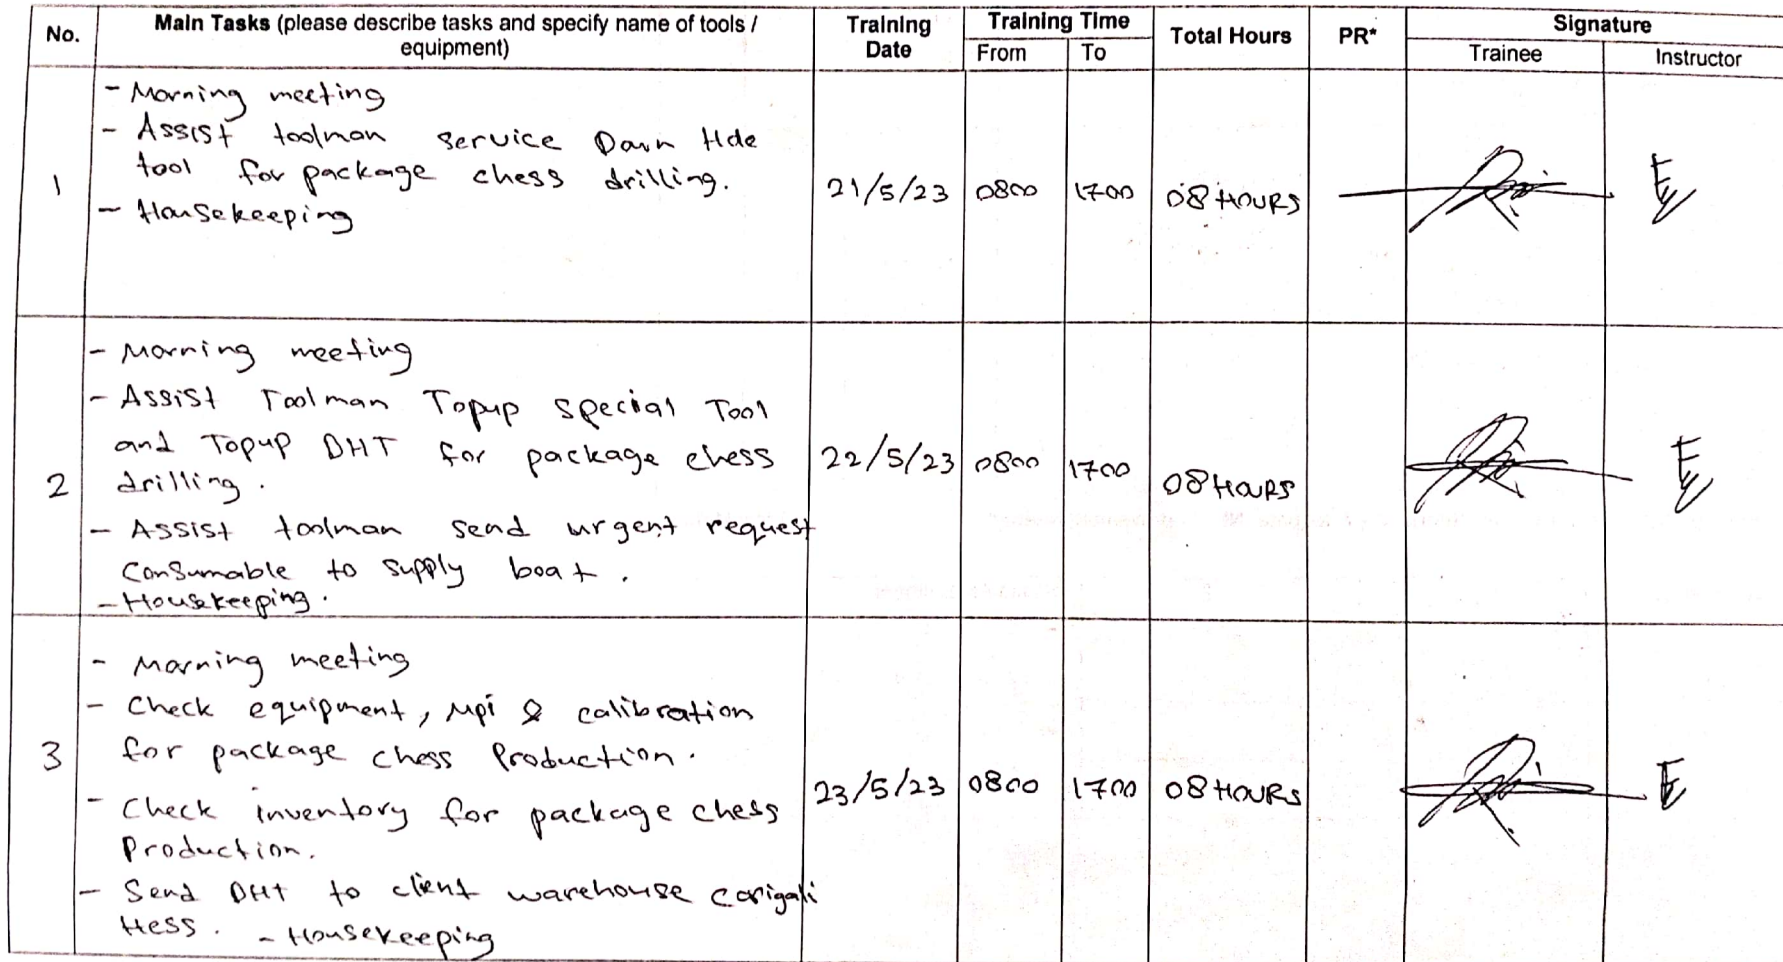 No.
Main Tasks (please describe tasks and specify name of tools /
equipment)
Training
Date
Training Time
From
To
Total Hours
PR*
Signature
Trainee
Instructor
1
- Morning meeting
- Assist toolman service Down Hole
tool for package chess drilling.
- Housekeeping
21/5/23
0800
1700
08 HOURS
2
- Morning meeting
- Assist Toolman Topup special Tool
and Topup DHT for package chess
drilling.
- Assist toolman send urgent request
Consumable to supply boat.
- Housekeeping.
22/5/23
0800
1700
08 HOURS
3
- Morning meeting
- Check equipment, Mpi & calibration
for package chess Production.
- Check inventory for package chess
Production.
- Send DHT to client warehouse carigali
Hess. - Housekeeping
23/5/23
0800
1700
08 HOURS